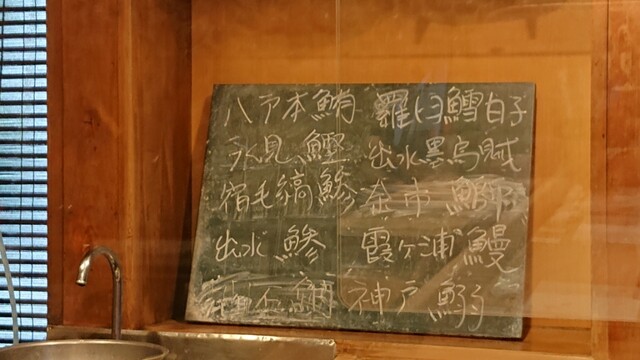 八戸本鮪
氷見 鰹
宿毛縞鯵
出水 鯵
羅臼鱈白子
出水墨烏賊
余市
霞ヶ浦鰻
神戸 鰯